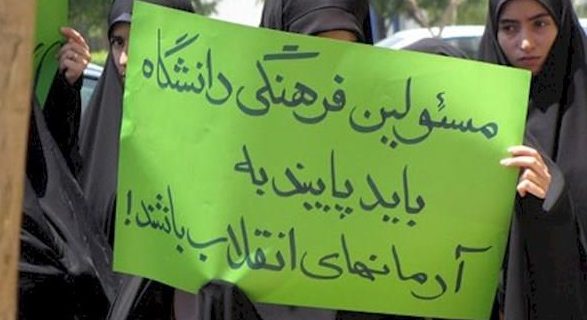 مسئولین فرهنگی دانشگاه
باید پایبند به
آرمانهای انقلاب باشند!